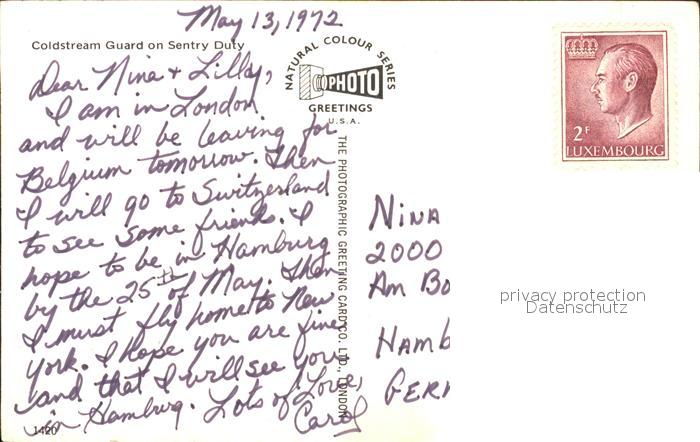 May 13, 1972
Coldstream Guard on Sentry Duty
Dear Nina + Lilly,
I am in London
and will be leaving for
Belgium tomorrow. Then
I will go to Switzerland
to see some friends. I
hope to be in Hamburg
by the 25th of May. Then
I must fly home to New
York. I hope you are fine
and that I will see you
in Hamburg. Lots of Love,
Carol
1420
NATURAL COLOUR SERIES
PHOTO
GREETINGS
U.S.A.
THE PHOTOGRAPHIC GREETING CARD CO. LTD., LONDON
2F
LUXEMBOURG
NINA
2000
AM BO
HAMB
GER
privacy protection
Datenschutz